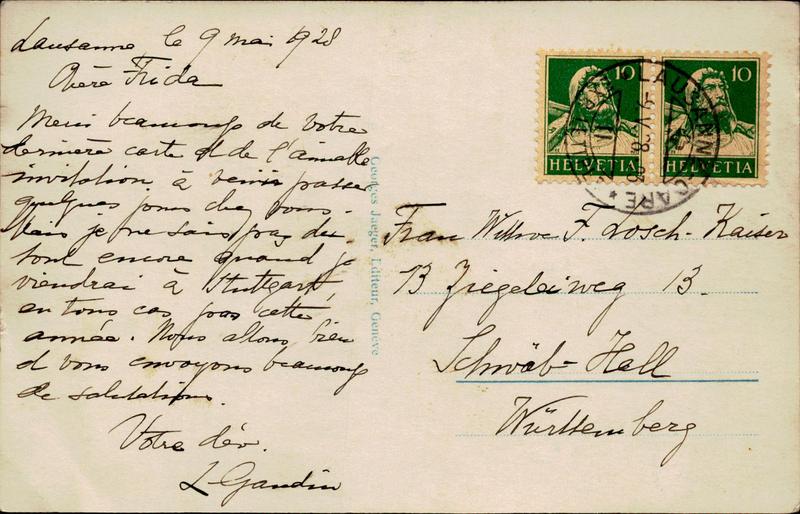 Lausanne le 9 mai 1928
Chère Frida
Merci beaucoup de votre
dernière carte et de l'aimable
invitation à venir passer
quelques jours chez vous.
Mais je ne sais pas du
tout encore quand je
viendrai à Stuttgart,
en tous cas pas cette
année. Nous allons bien
et vous envoyons beaucoup
de salutations.
Votre dév.
L Gaudin
Georges Jaeger, Editeur, Genève
10 HELVETIA
10 HELVETIA
LAUSANNE GARE
Frau Witwe F. Losch-Kaiser
13 Ziegeleiweg 13.
Schwäb-Hall
Württemberg